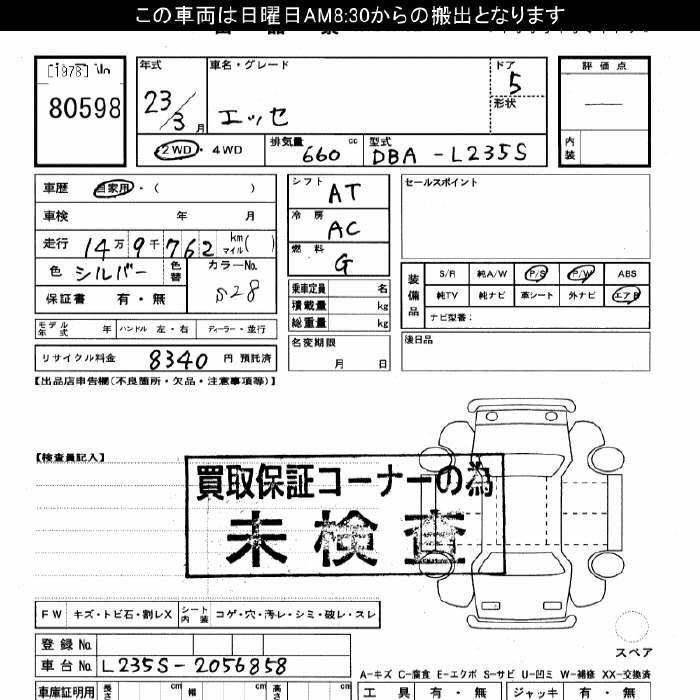 この車両は日曜日AM8:30からの搬出となります
[1978] No
80598
年式
23/3月
車名・グレード
エッセ
ドア
5
形状
評価点
内装
2WD・4WD
排気量
660 cc
型式
DBA-L235S
車歴 自家用・( )
車検 年 月
走行 14万9千762 km マイル( )
色 シルバー 色替
カラーNo.
S28
保証書 有・無
モデル年式 年 ハンドル 左・右 ディーラー・並行
リサイクル料金 8340 円 預託済
シフト
AT
冷房
AC
燃料
G
乗車定員 名
積載量 kg
総重量 kg
名変期限
月 日
セールスポイント
装備品
S/R 純A/W P/S P/W ABS
純TV 純ナビ 革シート 外ナビ エアB
ナビ型番:
後日品
【出品店申告欄(不良箇所・欠品・注意事項等)】
【検査員記入】
買取保証コーナーの為
未検査
FW キズ・トビ石・割レX シート内装 コゲ・穴・汚レ・シミ・破レ・スレ
登録No.
車台No. L235S-2056858
スペア
A-キズ C-腐食 E-エクボ S-サビ U-凹ミ W-補修 XX-交換済
車庫証明用 長さ cm 幅 cm 高さ cm
工具 有・無 ジャッキ 有・無